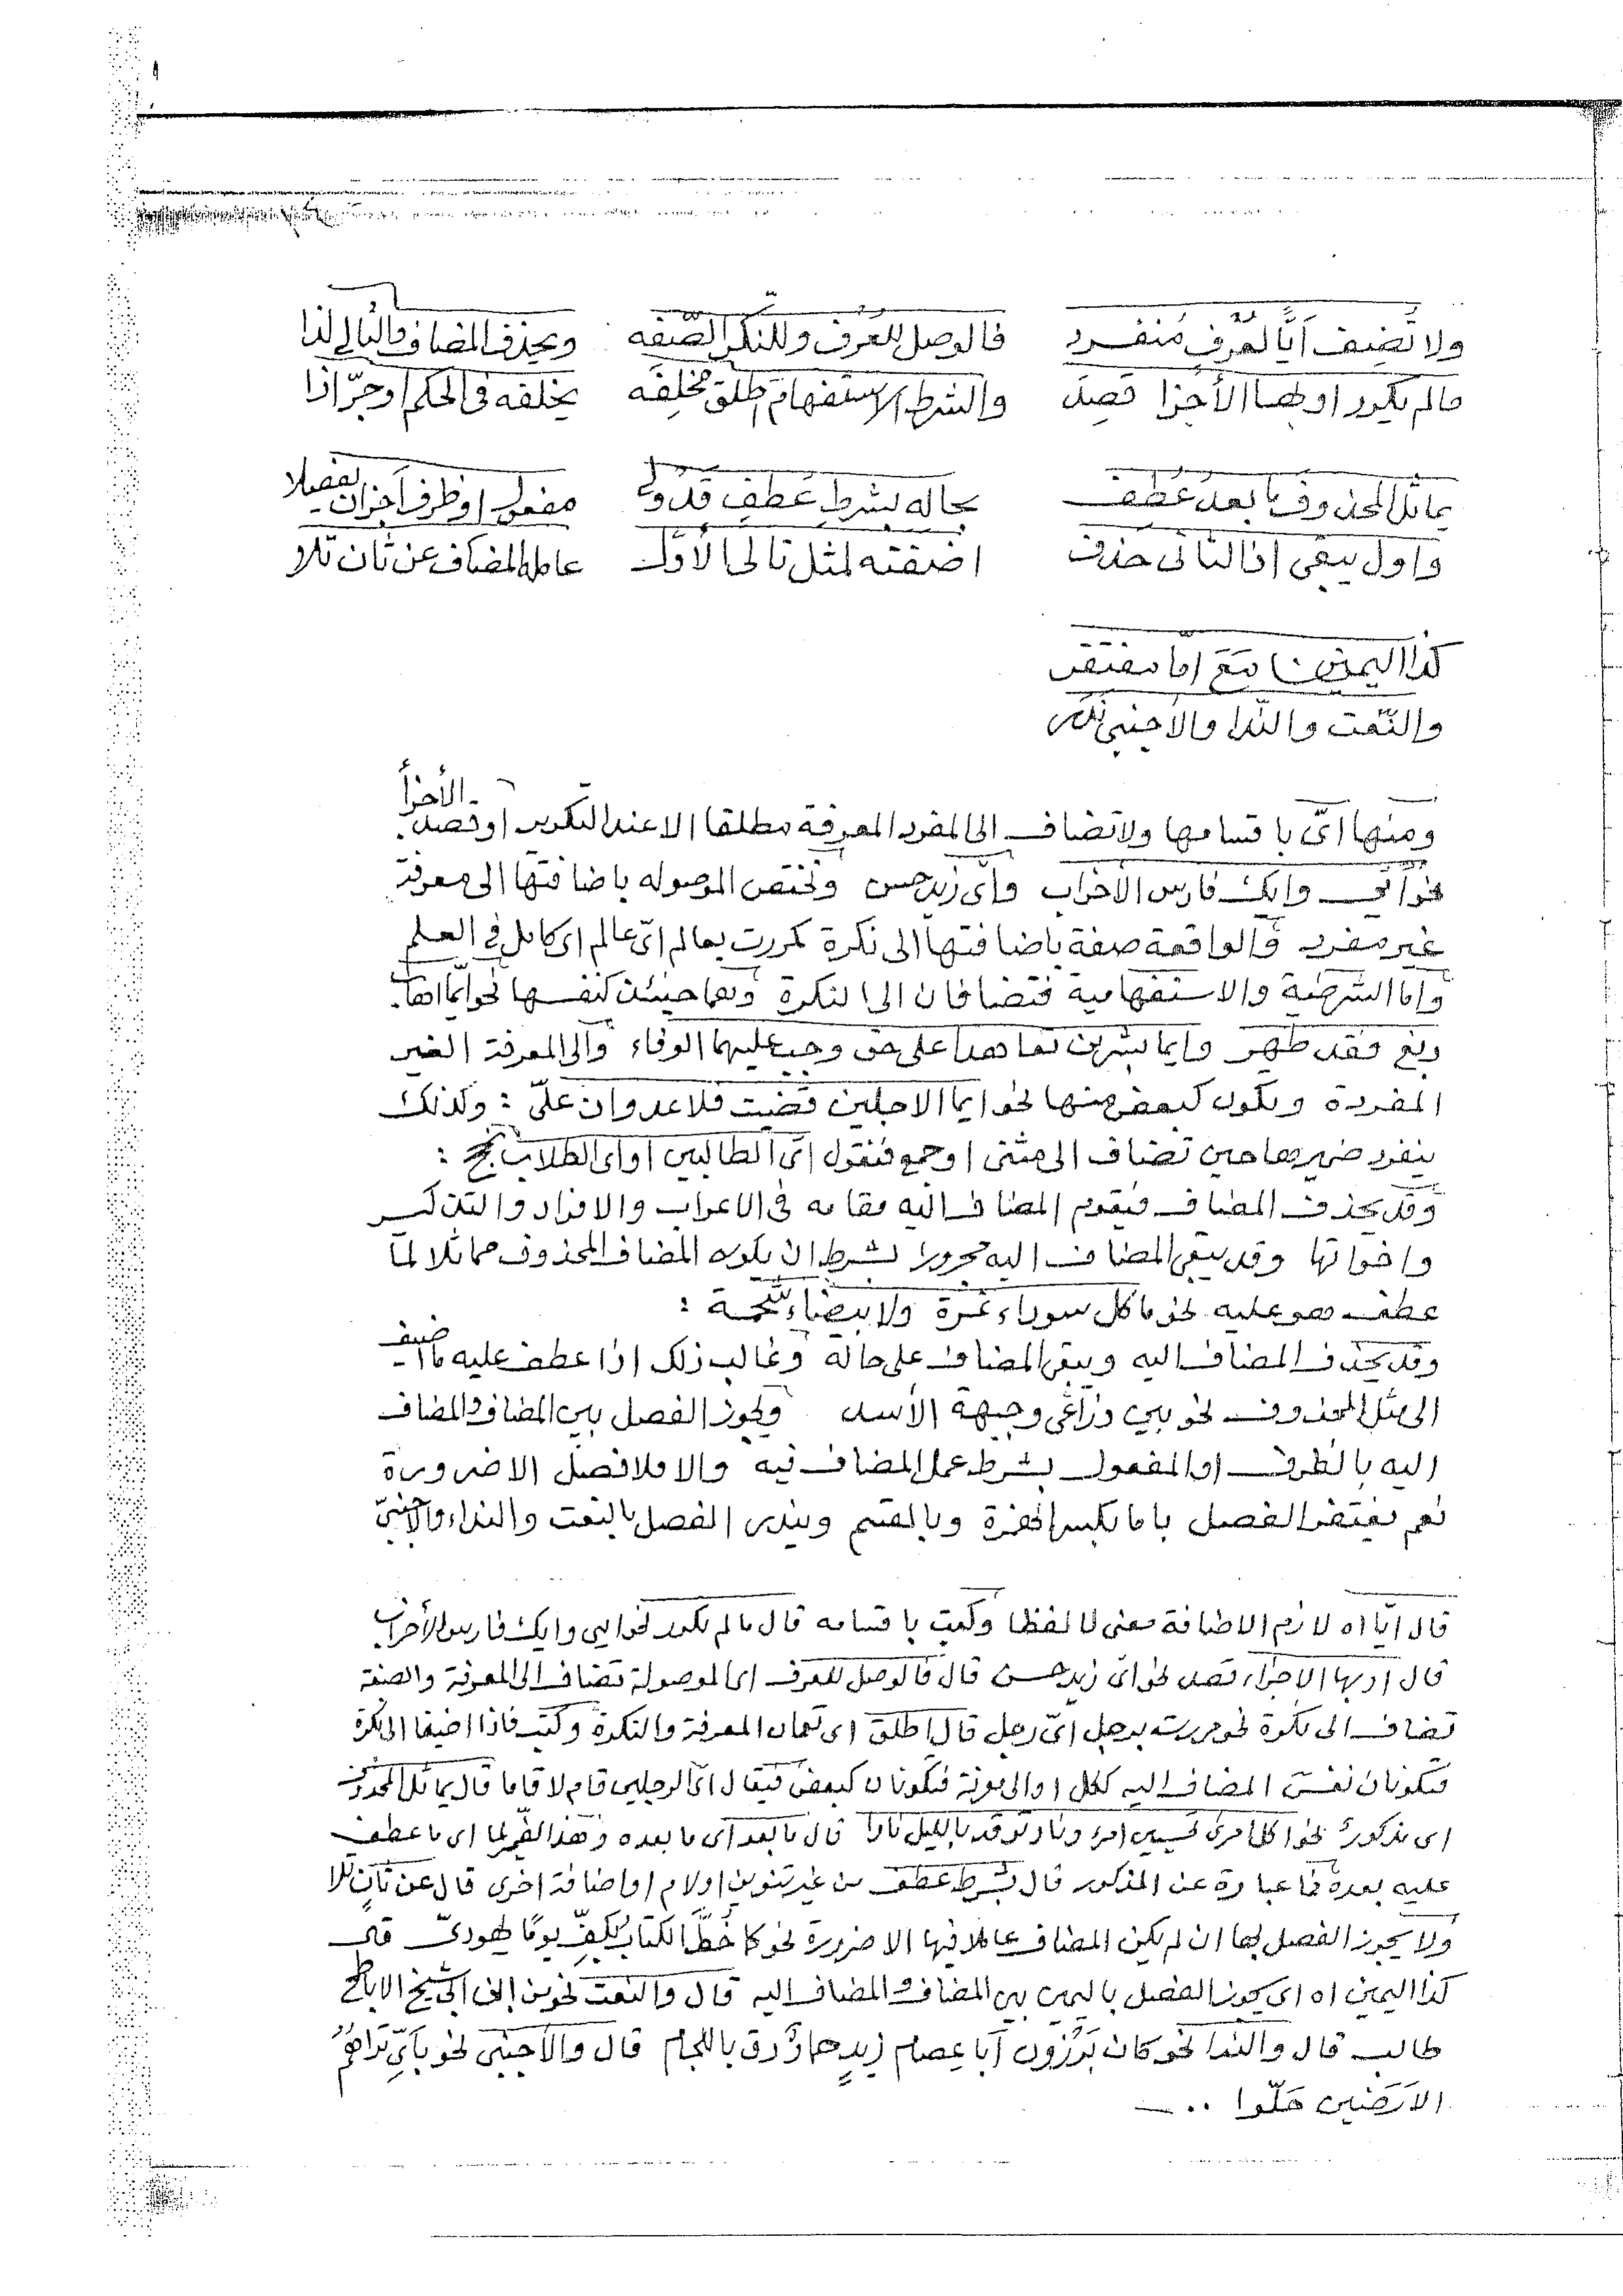 ولا تُضِف أيًّا لمُعْرفٍ مُنفرد فالوصل للمُعْرف وللنُّكْر الصّفه ويحذف المضاف فالتالي لذا
مالم يكرر او بها الأجزا قصد والشرط الاستفهام أطلق مخلفه يخلفه فى الحكم او جرّ اذا
يماثل المحذوف ما بعدُ عُطف بحاله بشرط عَطفٍ قد ولي مفعول او ظرف اَجز ان يفصلا
واول يبقى اذا الثانى حذف اضفته لمثل تالى الأوّل عامله المضاف عن ثان تلا
كذا اليمين مع اما مغتفر
والنّعت والنّدا والاجنبى ندر
ومنها اىّ باقسامها ولا تضاف الى المفرد المعرفة مطلقا الا عند التكرير او قصد الأجزأ
نحو أيي وايك فارس الأحزاب واىّ زيد حسن وتختص الموصوله باضافتها الى معرفة
غير مفرد والواقعة صفة باضافتها الى نكرة كمررت بعالم اىّ عالم اى كامل فى العلم
واما الشرطية والاستفهامية فتضافان الى النكرة وهما حينئذ كنفسها نحو ايّما اهاب
دبغ فقد طهر وايما بشرين تعاهدا على حق وجب عليهما الوفاء والى المعرفة الغير
المفردة ويكون كبعض منها نحو ايما الاجلين قضيت فلا عدوان علىّ : وكذلك
ينفرد ضميرها حين تضاف الى مثنى او جمع فتقول اىّ الطالبين او اى الطلاب نجح :
وقد يحذف المضاف فيقوم المضاف اليه مقامه فى الاعراب والافراد والتذكير
واخواتها وقد يبقى المضاف اليه مجرورا بشرط ان يكون المضاف المحذوف مماثلا لما
عطف هو عليه نحو ما كل سوداء تمرة ولا بيضاء شحمة :
وقد يحذف المضاف اليه ويبقى المضاف على حاله وغالب ذلك اذا عطف عليه ما اضيف
الى مثل المحذوف نحو بين ذراعى وجبهة الأسد ويجوز الفصل بين المضاف والمضاف
اليه بالظرف او المفعول بشرط عمل المضاف فيه والا فلا فصل الا ضرورة
نعم يغتفر الفصل باما بكسر الهمزة وبالقسم ويندر الفصل بالنعت والنداء والاجنبىّ
قال ايّا اه لازم الاضافة معنى لا لفظا وكتب باقسامه قال مالم يكرر نحو ايى وايك فارس الأحزاب
قال او بها الاجزاء قصد نحو اىّ زيد حسن قال فالوصل للمعرف اى الموصولة تضاف الى المعرفة والصفة
تضاف الى نكرة نحو مررت برجل اىّ رجل قال اطلق اى تعمان المعرفة والنكرة وكتب فاذا اضيفا الى نكرة
فتكونان نفس المضاف اليه ككل او الى معرفة فتكونان كبعض فيقال اىّ الرجلين قام لا قاما قال يماثل المحذوف
اى مذكورٌ نحو اكل امرئ تحسبين امرء ونار توقد بالليل نارا قال ما بعد اى ما بعده وهذا لما اى ما عطف
عليه بعده فما عبارة عن المذكور قال بشرط عطف من غير تنوين او لام او اضافة اخرى قال عن ثانٍ تلا
ولا يجوز الفصل بها ان لم يكن المضاف عاملا فيها الا ضرورة نحو كما خُطَّ الكتاب بكفِّ يومًا يهودىّ قال
كذا اليمين اه اى يجوز الفصل باليمين بين المضاف والمضاف اليه قال والنعت نحو من ابن ابى شيخ الاباطح
طالب قال والندا نحو كان بَرْزون أبا عِصام زيدٍ حمارٌ دق باللجام قال والأجنبى نحو بأىّ تراهُمُ
الارَضين حَلّوا ..